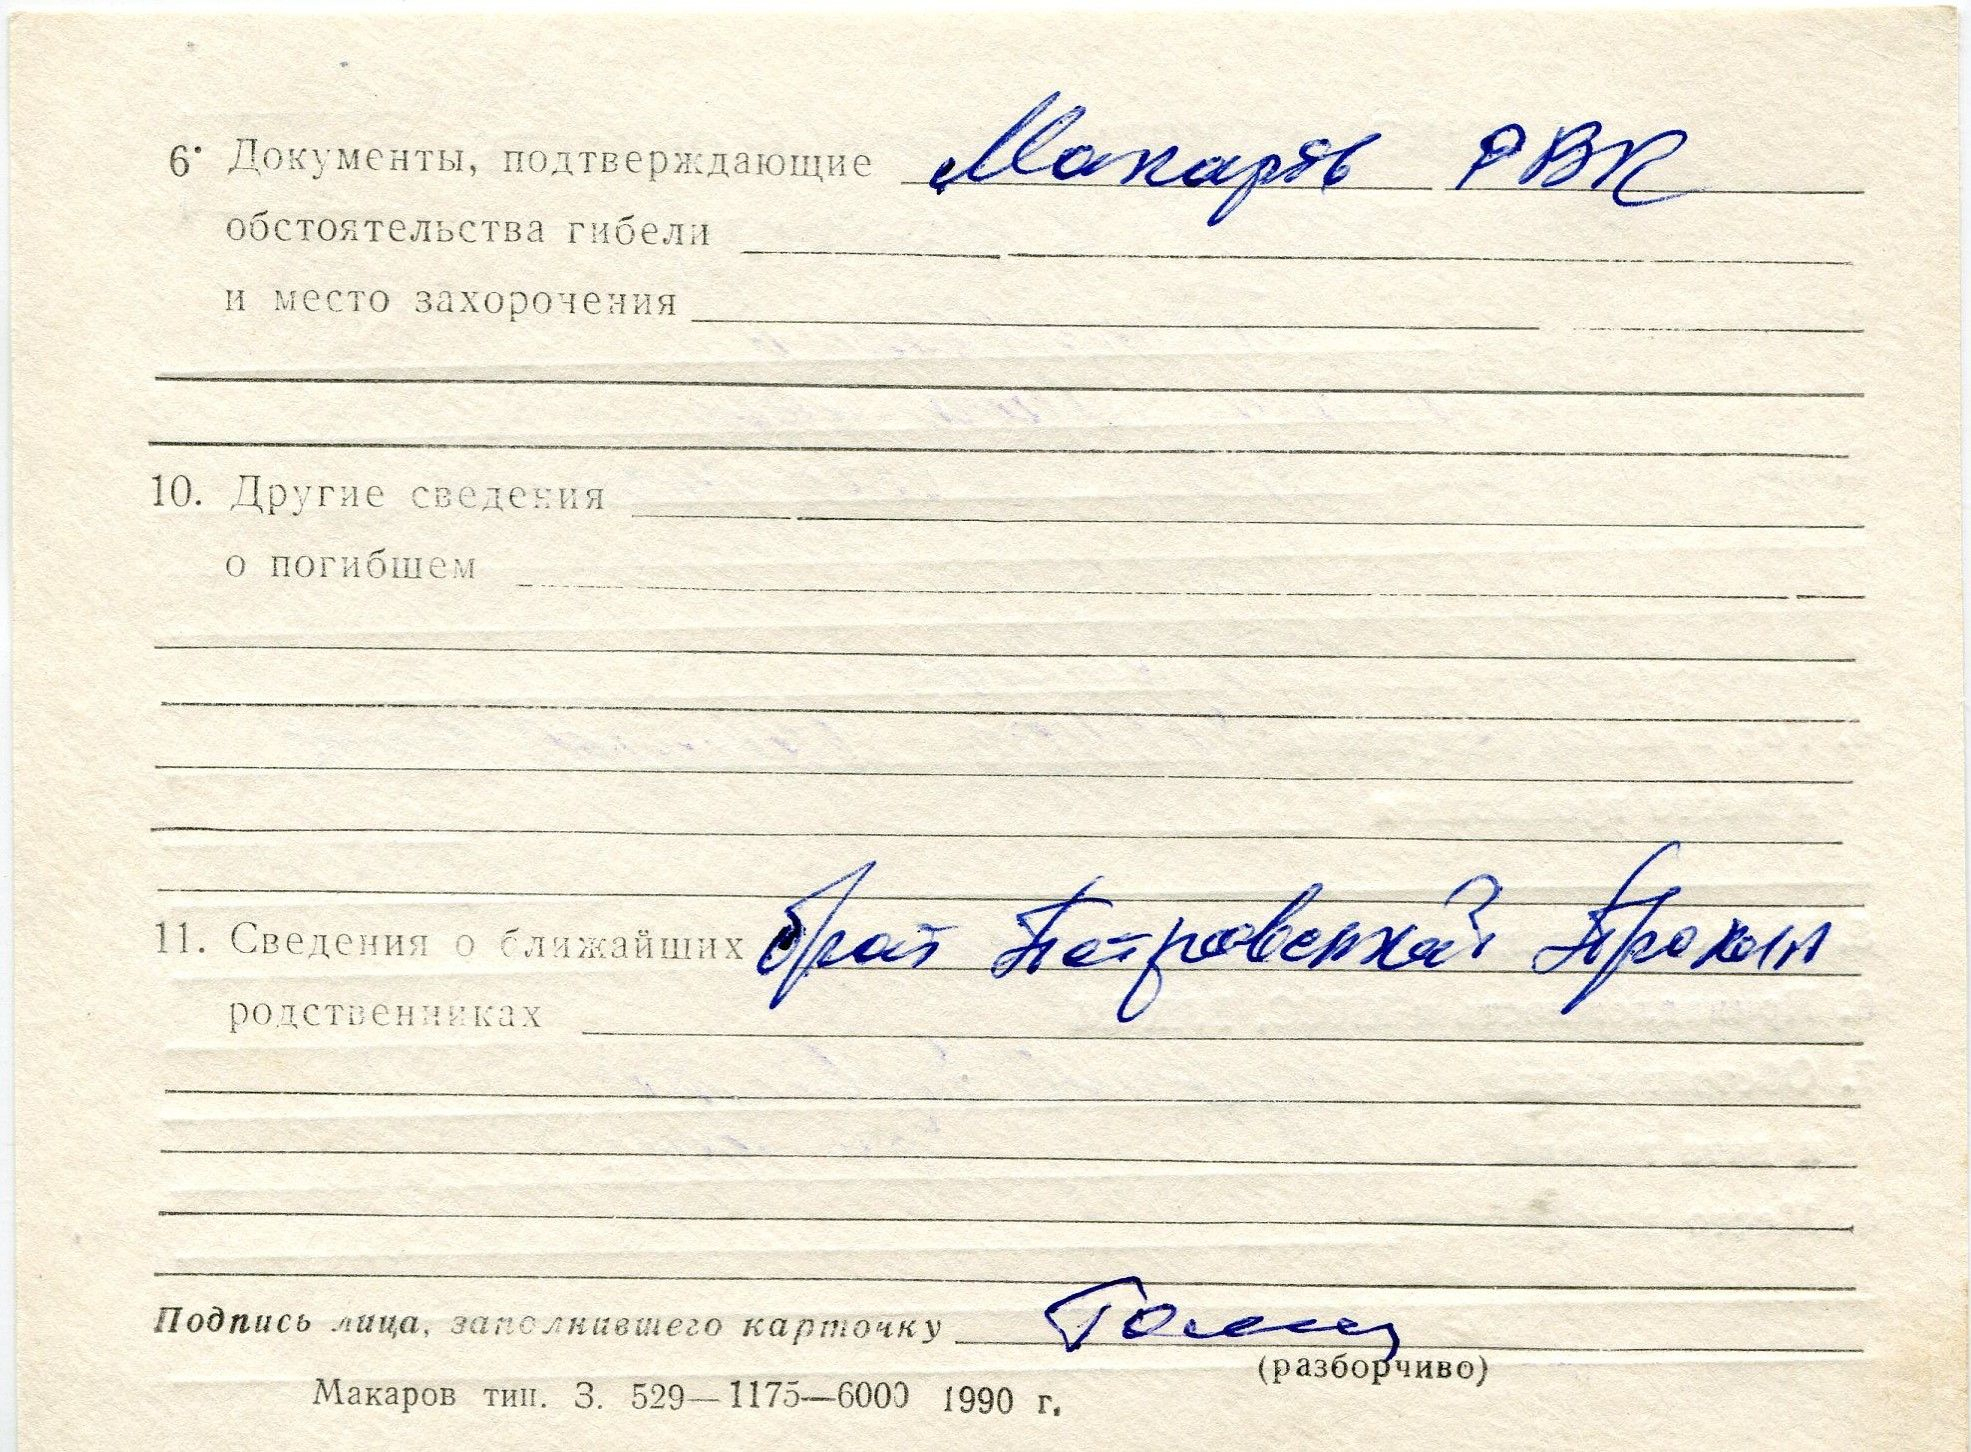 6. Документы, подтверждающие Макаров РВК
обстоятельства гибели
и место захорочения
10. Другие сведения
о погибшем
11. Сведения о ближайших брат Петровский Прокоп
родственниках
Подпись лица, заполнившего карточку
(разборчиво)
Макаров тип. З. 529—1175—6000 1990 г.